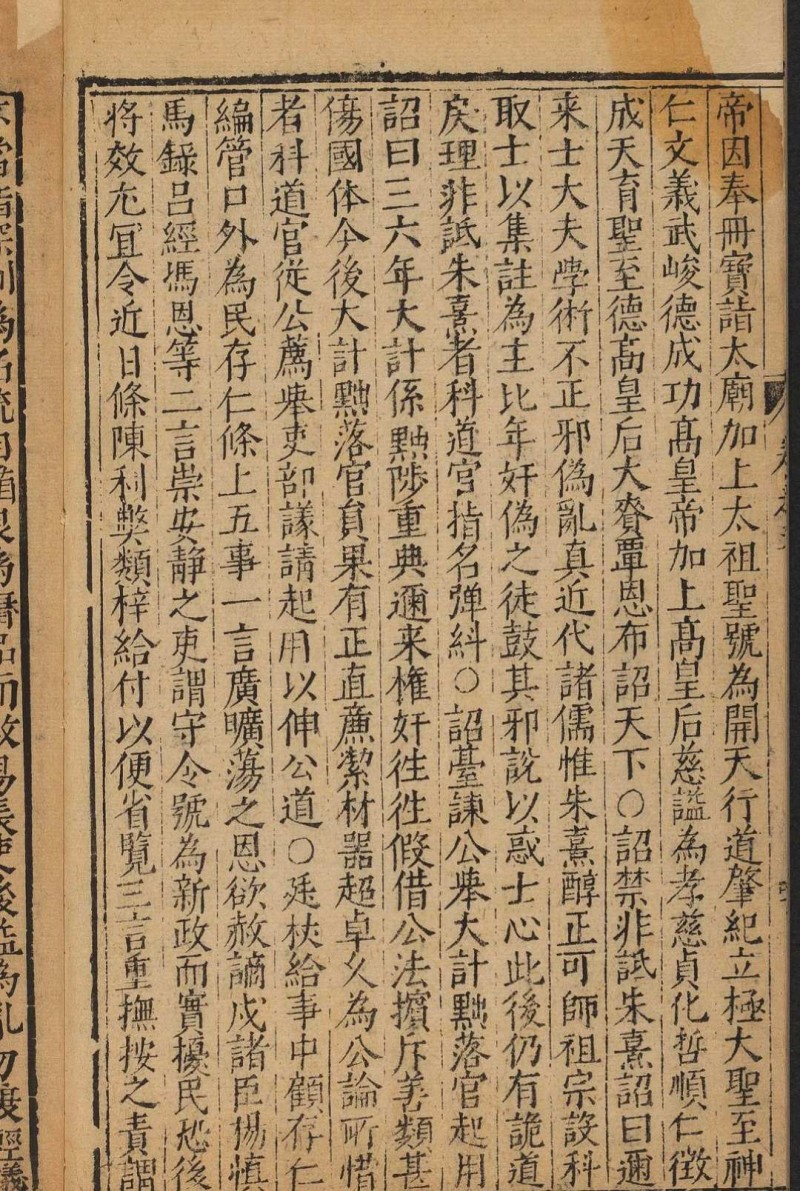 帝因奉冊寶詣太廟加上太祖聖號為開天行道肇紀立極大聖至神
仁文義武峻德成功髙皇帝加上髙皇后慈謚為孝慈貞化哲順仁徴
成天育聖至德髙皇后大賚覃恩布詔天下○詔禁非詆朱熹詔曰邇
来士大夫學術不正邪偽亂真近代諸儒惟朱熹醇正可師祖宗設科
取士以集註為主比年奸偽之徒鼓其邪說以惑士心此後仍有詭道
戾理非詆朱熹者科道官指名弹糾○詔臺諫公舉大計黜落官起用
詔曰三六年大計係黜陟重典邇来権奸徃徃假借公法擯斥善類甚
傷國体今後大計黜落官負果有正直亷潔材噐超卓乆為公論所惜
者科道官従公薦舉吏部議請起用以伸公道○廷杖給事中顧存仁
編管口外為民存仁條上五事一言廣曠蕩之恩欲赦謫戍諸臣楊慎
馬錄吕經馮恩等二言崇安静之吏謂守令號為新政而實擾民恐後
将效尤冝令近日條陳利獘類梓給付以便省覽三言重撫按之責謂